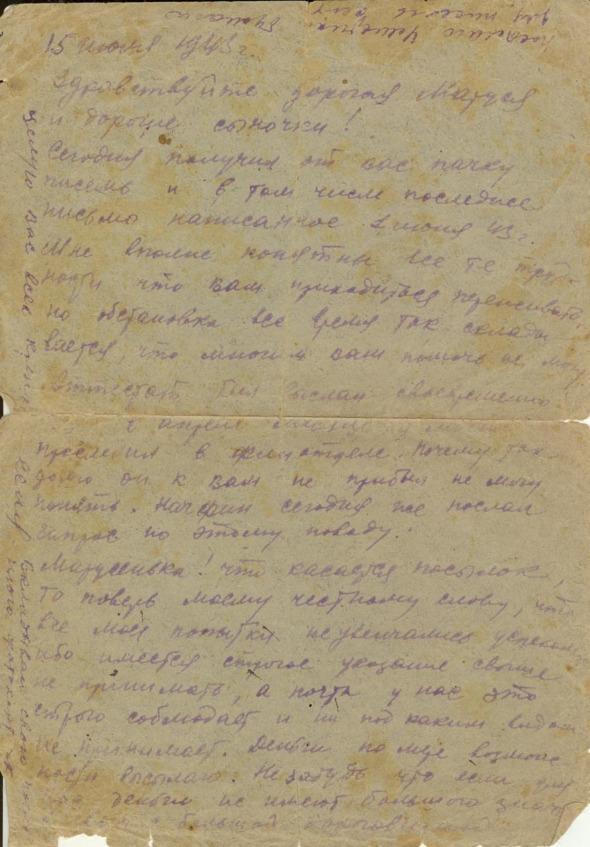 15 июня 1943 г.
Здравствуйте дорогая Маруся
и дорогие сыночки!
Сегодня получил от вас пачку
писем и в том числе последнее
письмо написанное 2 июня 43 г.
Мне вполне понятны все те труд-
ности что вам приходиться переживать,
но обстановка все время так склады-
вается, что многим вам помочь не могу
Аттестат был выслан своевременно
в апреле
в финотделе. Почему так
долго он к вам не прибыл не могу
понять. Начфин сегодня же послал
запрос по этому поводу.
Марусенька! что касается посылок,
то поверь моему честному слову, что
все мои попытки не увенчались успехом
ибо имеется строгое указание свыше
не принимать, а почта у нас это
строго соблюдает и ни под каким видом
не принимает. Деньги по мере возмож-
ности высылаю. Не забудь что если для
деньги не имеют большого значе
большой
целую вас всех
Посылаю
для писем
бумаги